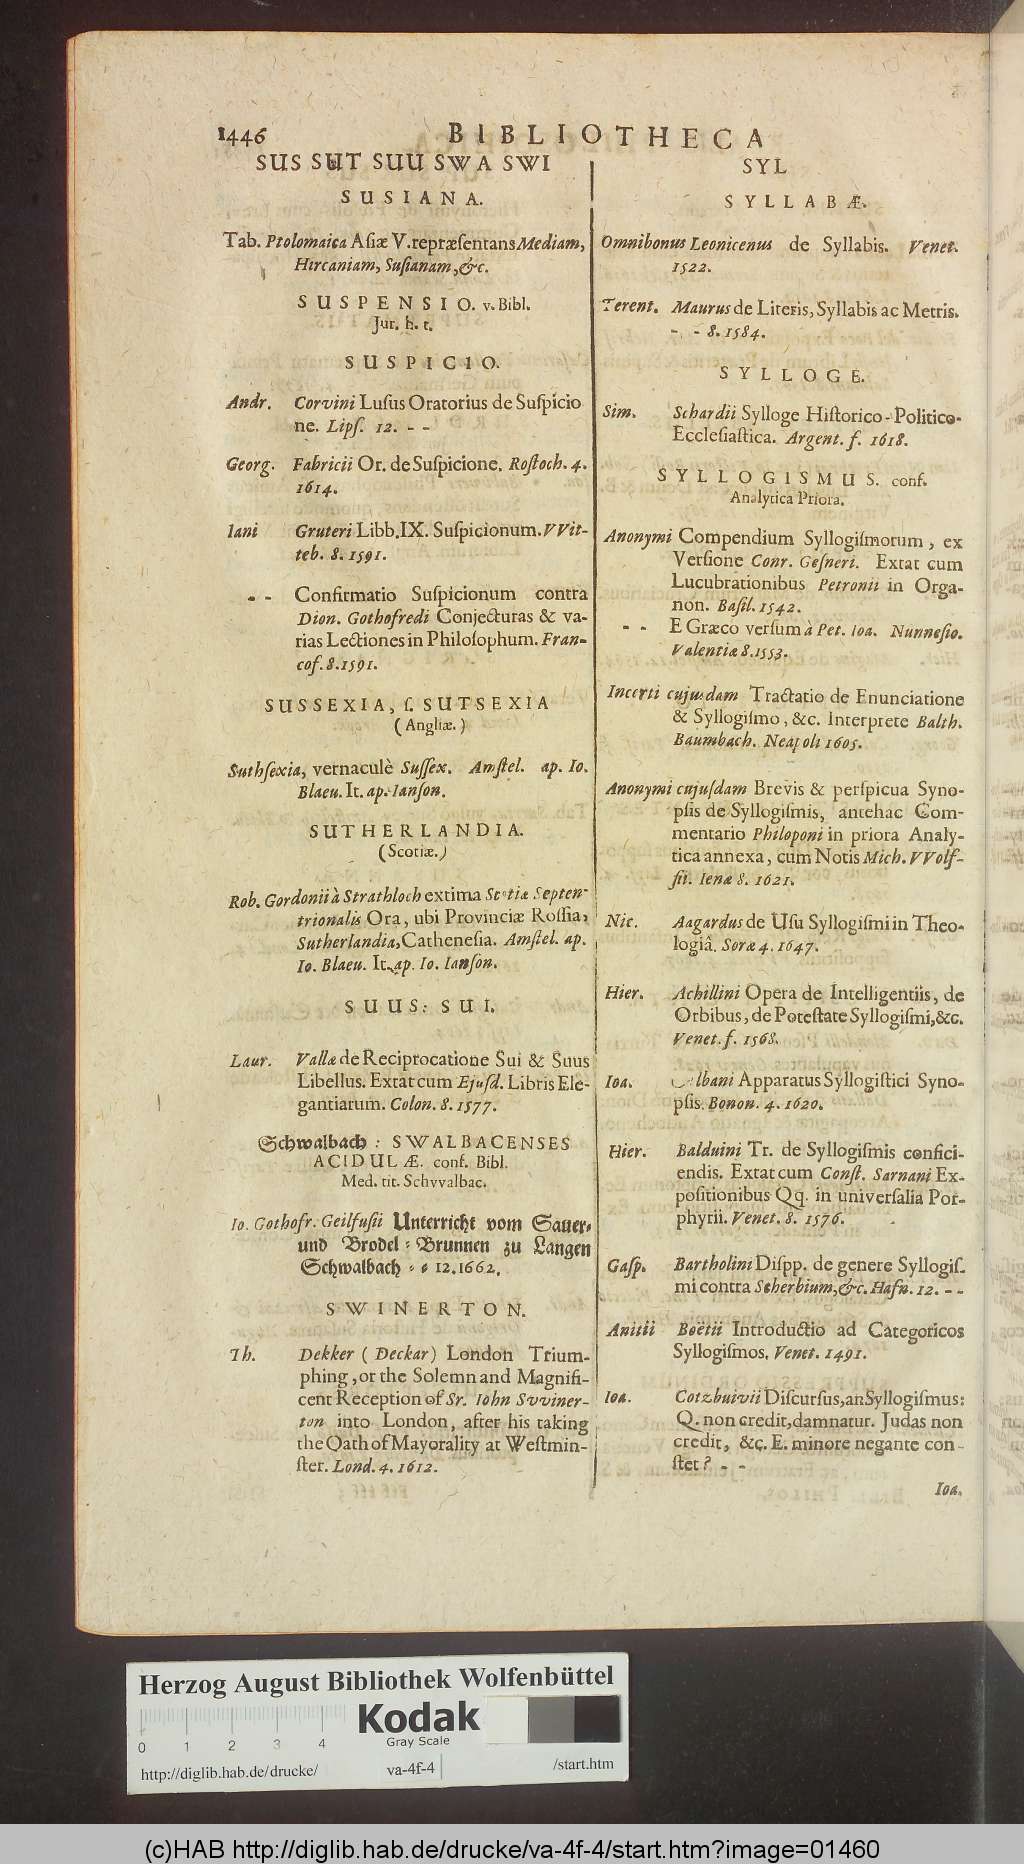 1446 BIBLIOTHECA
SUS SUT SUU SWA SWI
SUSIANA.
Tab. Ptolomaica Asiæ V. repræſentans Mediam,
Hircaniam, Suſianam, &c.
SUSPENSIO. v. Bibl.
Jur. h. t.
SUSPICIO.
Andr. Corvini Luſus Oratorius de Suſpicio
ne. Lipſ. 12. - -
Georg. Fabricii Or. de Suſpicione. Roſtoch. 4.
1614.
Iani Gruteri Libb. IX. Suſpicionum. VVit-
teb. 8. 1591.
- - Confirmatio Suſpicionum contra
Dion. Gothofredi Conjecturas & va-
rias Lectiones in Philoſophum. Fran-
cof. 8. 1591.
SUSSEXIA, ſ. SUTSEXIA
(Angliæ.)
Suthſexia, vernaculè Suſſex. Amſtel. ap. Io.
Blaeu. It. ap. Ianſon.
SUTHERLANDIA.
(Scotiæ.)
Rob. Gordonii à Strathloch extima Scotiæ Septen-
trionalis Ora, ubi Provinciæ Roſſia,
Sutherlandia, Catheneſia. Amſtel. ap.
Io. Blaeu. It. ap. Io. Ianſon.
SUUS: SUI.
Laur. Vallæ de Reciprocatione Sui & Suus
Libellus. Extat cum Ejuſd. Libris Ele-
gantiarum. Colon. 8. 1577.
Schwalbach: SWALBACENSES
ACIDULÆ. conf. Bibl.
Med. tit. Schvvalbac.
Io. Gothofr. Geilfuſii Unterricht vom Sauer-
und Brodel-Brunnen zu Langen
Schwalbach - - 12. 1662.
SWINERTON.
Th. Dekker (Deckar) London Trium-
phing, or the Solemn and Magnifi-
cent Reception of Sr. Iohn Svviner-
ton into London, after his taking
the Oath of Mayorality at Weſtmin-
ſter. Lond. 4. 1612.
SYL
SYLLABÆ.
Omnibonus Leonicenus de Syllabis. Venet.
1522.
Terent. Maurus de Literis, Syllabis ac Metris.
- - 8. 1584.
SYLLOGE.
Sim. Schardii Sylloge Hiſtorico-Politico-
Eccleſiaſtica. Argent. f. 1618.
SYLLOGISMUS. conf.
Analytica Priora.
Anonymi Compendium Syllogiſmorum, ex
Verſione Conr. Geſneri. Extat cum
Lucubrationibus Petronii in Orga-
non. Baſil. 1542.
- - E Græco verſum à Pet. Ioa. Nunneſio.
Valentiæ 8. 1553.
Incerti cujusdam Tractatio de Enunciatione
& Syllogiſmo, &c. Interprete Balth.
Baumbach. Neapoli 1605.
Anonymi cujuſdam Brevis & perſpicua Syno-
pſis de Syllogiſmis, antehac Com-
mentario Philoponi in priora Analy-
tica annexa, cum Notis Mich. VVolf-
fii. Ienæ 8. 1621.
Nic. Aagardus de Uſu Syllogiſmi in Theo-
logiâ. Soræ 4. 1647.
Hier. Achillini Opera de Intelligentiis, de
Orbibus, de Poteſtate Syllogiſmi, &c.
Venet. f. 1568.
Ioa. lbani Apparatus Syllogiſtici Syno-
pſis. Bonon. 4. 1620.
Hier. Balduini Tr. de Syllogiſmis confici-
endis. Extat cum Conſt. Sarnani Ex-
poſitionibus Qq. in univerſalia Por-
phyrii. Venet. 8. 1576.
Gaſp. Bartholini Diſpp. de genere Syllogiſ-
mi contra Scherbium, &c. Hafn. 12. - -
Anitii Boëtii Introductio ad Categoricos
Syllogiſmos. Venet. 1491.
Ioa. Cotzbuivii Diſcurſus, an Syllogiſmus:
Q. non credit, damnatur. Judas non
credit, &c. E. minore negante con-
ſtet? - -
Ioa.
Herzog August Bibliothek Wolfenbüttel
Kodak
Gray Scale
0 1 2 3 4
http://diglib.hab.de/drucke/ va-4f-4 /start.htm
(c)HAB http://diglib.hab.de/drucke/va-4f-4/start.htm?image=01460